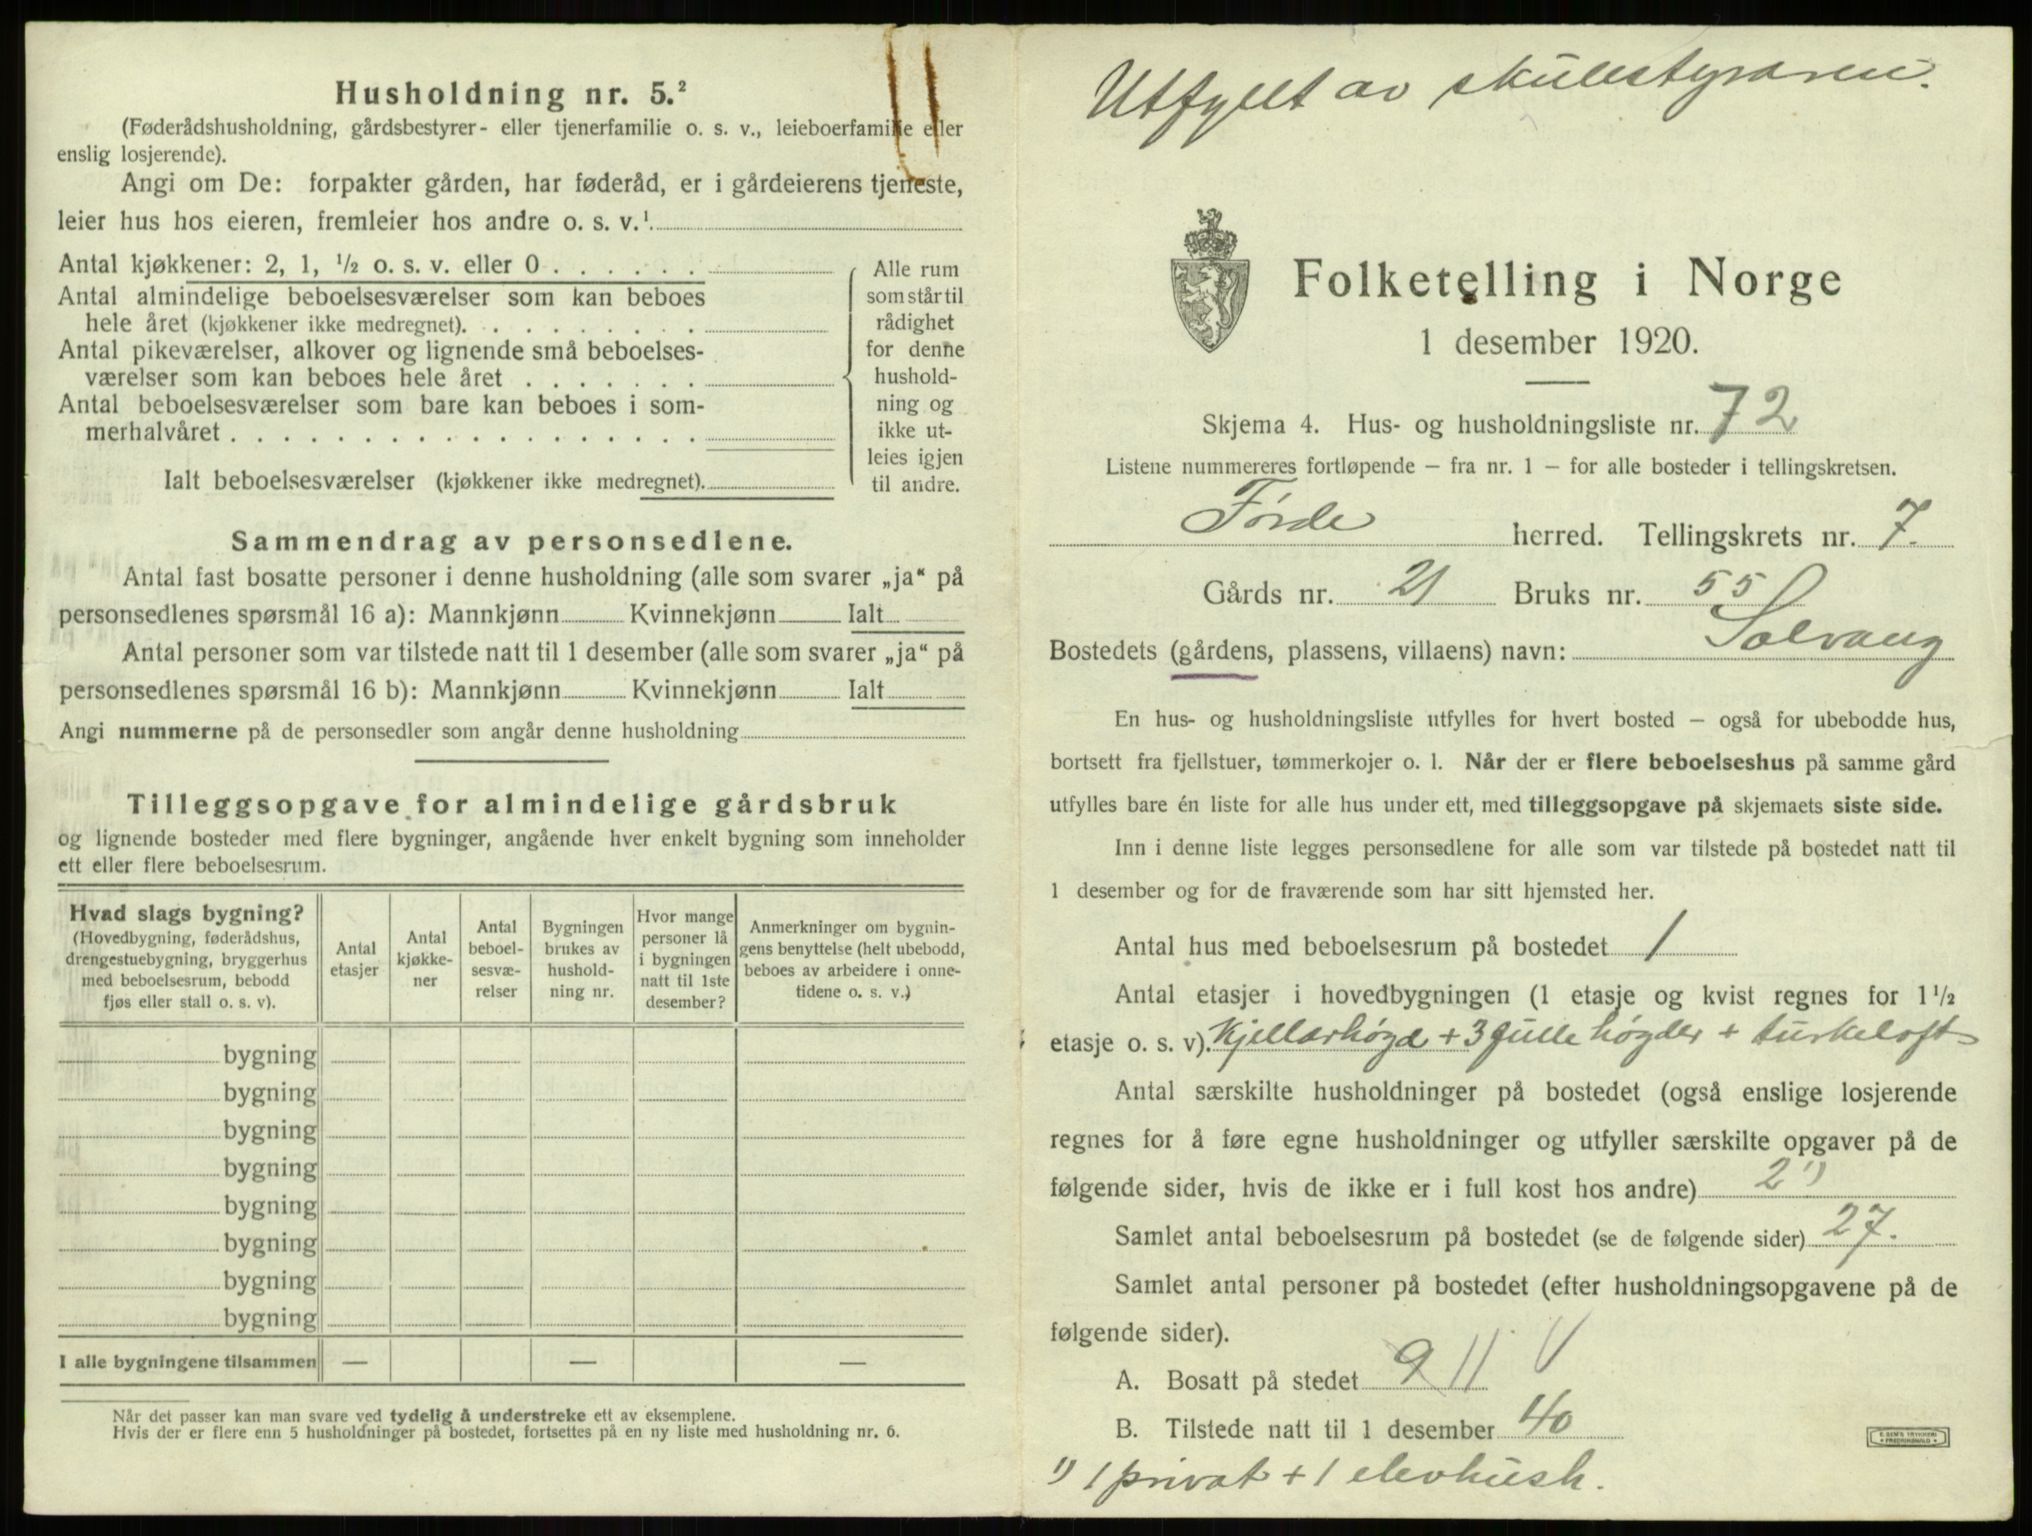 Husholdning nr. 5.²
(Føderådshusholdning, gårdsbestyrer- eller tjenerfamilie o. s. v., leieboerfamilie eller
enslig losjerende).
Angi om De: forpakter gården, har føderåd, er i gårdeierens tjeneste,
leier hus hos eieren, fremleier hos andre o. s. v.¹
Antal kjøkkener: 2, 1, ½ o. s. v. eller 0 . . . . . .
Antal almindelige beboelsesværelser som kan beboes
hele året (kjøkkener ikke medregnet). . . . . . . . .
Antal pikeværelser, alkover og lignende små beboelses-
værelser som kan beboes hele året . . . . . . .
Antal beboelsesværelser som bare kan beboes i som-
merhalvåret . . . . . . . . . . . . . . . . . .
Ialt beboelsesværelser (kjøkkener ikke medregnet).
Alle rum
som står til
rådighet
for denne
hushold-
ning og
ikke ut-
leies igjen
til andre.
Sammendrag av personsedlene.
Antal fast bosatte personer i denne husholdning (alle som svarer „ja“ på
personsedlenes spørsmål 16 a): Mannkjønn Kvinnekjønn Ialt
Antal personer som var tilstede natt til 1 desember (alle som svarer „ja“ på
personsedlenes spørsmål 16 b): Mannkjønn Kvinnekjønn Ialt
Angi nummerne på de personsedler som angår denne husholdning
Tilleggsopgave for almindelige gårdsbruk
og lignende bosteder med flere bygninger, angående hver enkelt bygning som inneholder
ett eller flere beboelsesrum.
Hvad slags bygning?
(Hovedbygning, føderådshus,
drengestuebygning, bryggerhus
med beboelsesrum, bebodd
fjøs eller stall o. s. v).
Antal
etasjer
Antal
kjøkke-
ner
Antal
beboel-
sesvæ-
relser
Bygningen
brukes av
hushold-
ning nr.
Hvor mange
personer lå
i bygningen
natt til 1ste
desember?
Anmerkninger om bygnin-
gens benyttelse (helt ubebodd,
beboes av arbeidere i onne-
tidene o. s. v.)
bygning
bygning
bygning
bygning
bygning
bygning
bygning
bygning
I alle bygningene tilsammen — — —
Når det passer kan man svare ved tydelig å understreke ett av eksemplene.
Hvis der er flere enn 5 husholdninger på bostedet, fortsettes på en ny liste med husholdning nr. 6.
Utfyllt av skulestyraren.
Folketelling i Norge
1 desember 1920.
Skjema 4. Hus- og husholdningsliste nr. 72
Listene nummereres fortløpende – fra nr. 1 – for alle bosteder i tellingskretsen.
Førde herred. Tellingskrets nr. 7.
Gårds nr. 21 Bruks nr. 55
Bostedets (gårdens, plassens, villaens) navn: Solvang
En hus- og husholdningsliste utfylles for hvert bosted – også for ubebodde hus,
bortsett fra fjellstuer, tømmerkojer o. l. Når der er flere beboelseshus på samme gård
utfylles bare én liste for alle hus under ett, med tilleggsopgave på skjemaets siste side.
Inn i denne liste legges personsedlene for alle som var tilstede på bostedet natt til
1 desember og for de fraværende som har sitt hjemsted her.
Antal hus med beboelsesrum på bostedet 1
Antal etasjer i hovedbygningen (1 etasje og kvist regnes for 1½
etasje o. s. v). Kjellarhøgd + 3 fulle høgder + turkeloft
Antal særskilte husholdninger på bostedet (også enslige losjerende
regnes for å føre egne husholdninger og utfyller særskilte opgaver på de
følgende sider, hvis de ikke er i full kost hos andre) 2 ¹)
Samlet antal beboelsesrum på bostedet (se de følgende sider) 27.
Samlet antal personer på bostedet (efter husholdningsopgavene på de
følgende sider).
A. Bosatt på stedet 9 11 V
B. Tilstede natt til 1 desember 40
¹) 1 privat + 1 elevhush.